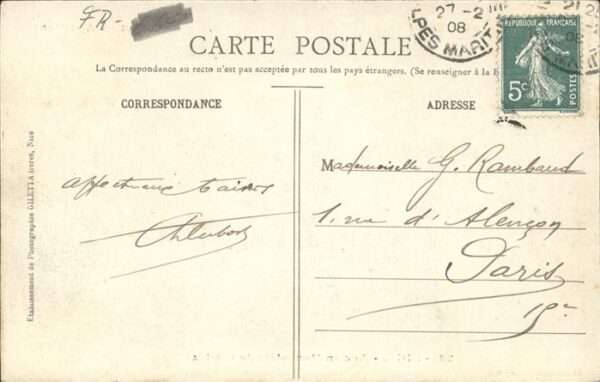 FR-
CARTE POSTALE
La Correspondance au recto n'est pas acceptée par tous les pays étrangers. (Se renseigner à la
CORRESPONDANCE
ADRESSE
27-2
08
PES MARIT
RÉPUBLIQUE FRANÇAISE
5c
POSTES
Mademoiselle G. Rambaud
1. rue d'Alençon
Paris
15e
Etablissement de Photographie GILETTA frères, Nice